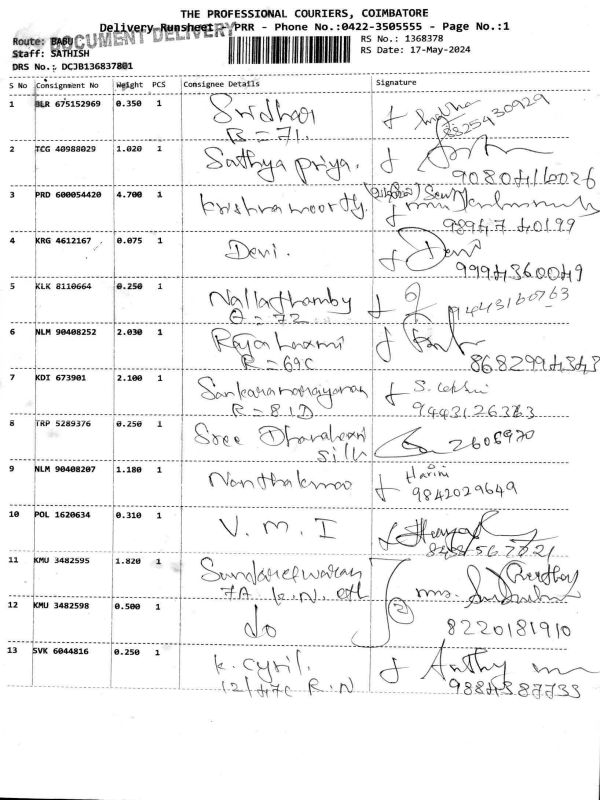 THE PROFESSIONAL COURIERS, COIMBATORE
Delivery Runsheet - PRR - Phone No.:0422-3505555 - Page No.:1
DOCUMENT DELIVERY
Route: BABU
RS No.: 1368378
Staff: SATHISH
RS Date: 17-May-2024
DRS No.: DCJB136837801
S No Consignment No Weight PCS Consignee Details Signature
1 BLR 675152969 0.350 1 Sridhar
R=71. 8825430929
2 TCG 40988029 1.020 1 Sathya priya.
9080416026
3 PRD 600054420 4.700 1 Krishnamoorthy.
98947 40199
4 KRG 4612167 0.075 1 Devi. Devi
9994360049
5 KLK 8110664 0.250 1 Nallathamby 9443160763
R=72
6 NLM 90408252 2.030 1 Rajalaxmi
R=69C 8682994343
7 KDI 673901 2.100 1 Sankaranarayanan
R=81D 9443126363
8 TRP 5289376 0.250 1 Sree Dharahani 2606970
silk
9 NLM 90408207 1.180 1 Nanthakumar Harini
9842029649
10 POL 1620634 0.310 1 V. M. I
11 KMU 3482595 1.820 1 Sundareswaran
7A K.N.
12 KMU 3482598 0.500 1 do 2
8220181910
13 SVK 6044816 0.250 1 K. Cyril. Anthy
12/47C R.N 9884387733